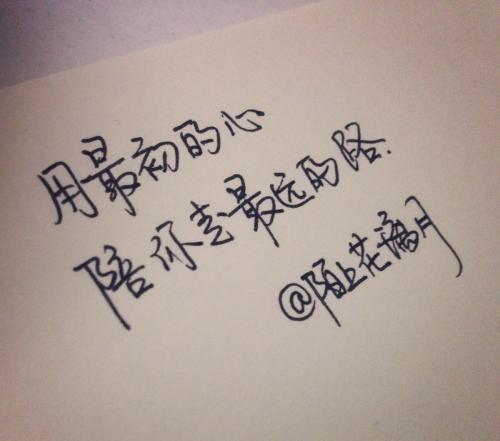 用最初的心
陪你去最远的路.
@陌上花漪月